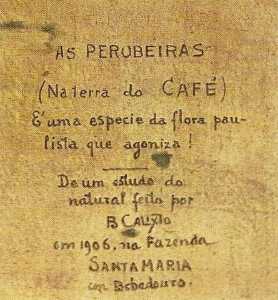 AS PEROBEIRAS
(Na terra do CAFÉ)
E' uma especie da flora pau-
lista que agoniza !
De um estudo do
natural feito por
B CALIXTO
em 1906, na Fazenda
SANTA MARIA
em Bebedouro.